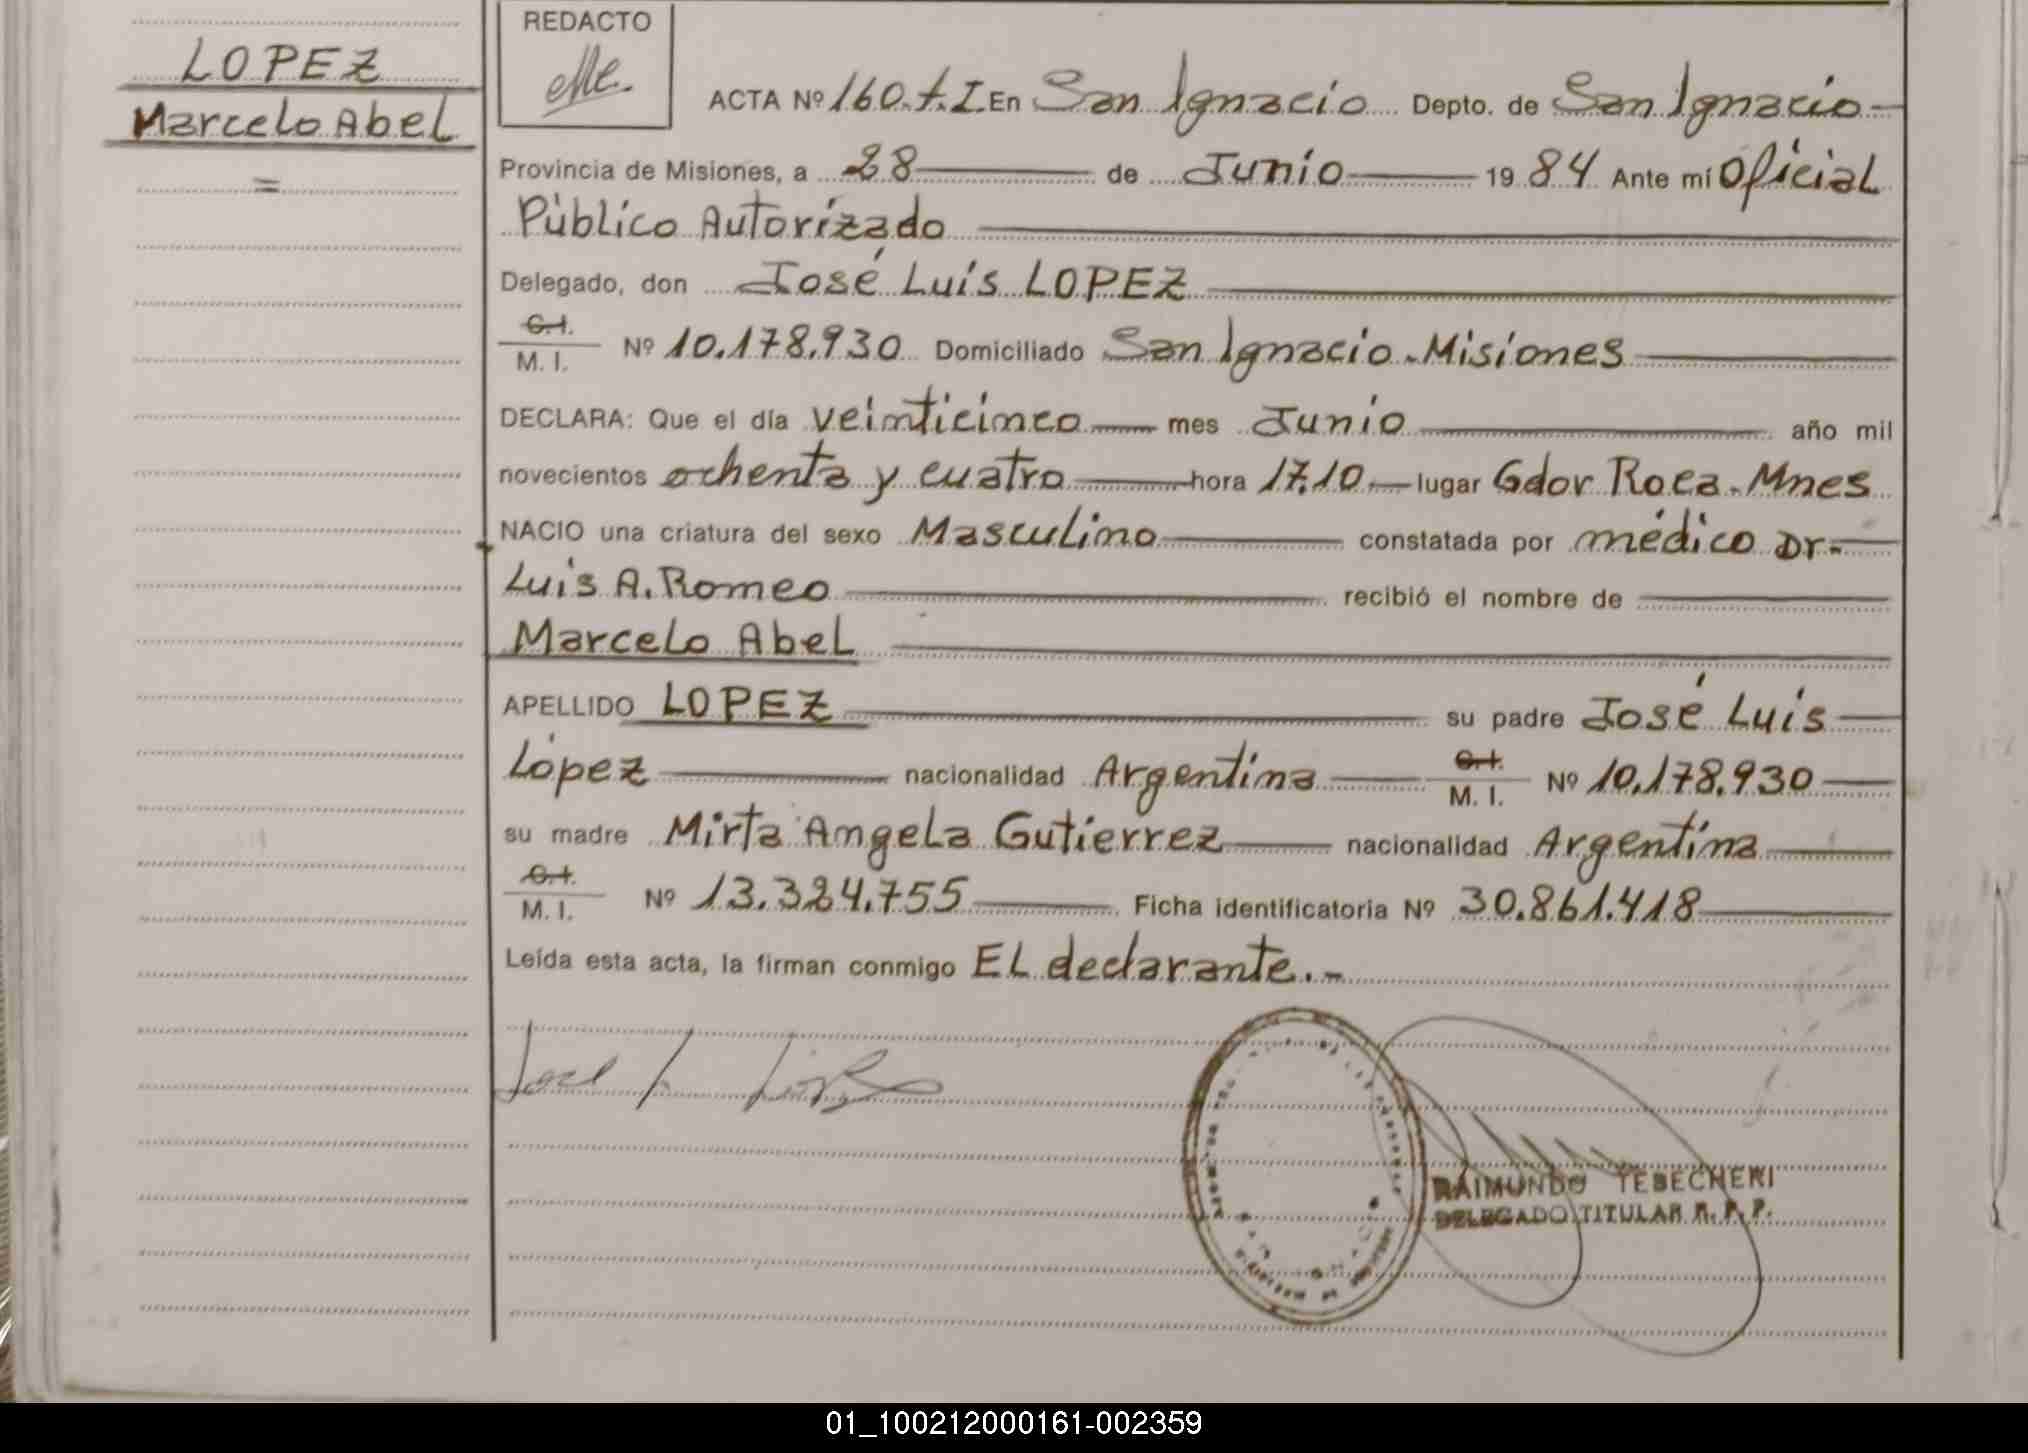 LOPEZ
Marcelo Abel
=
REDACTO
ACTA Nº 160.t.I En San Ignacio Depto. de San Ignacio
Provincia de Misiones, a 28 de Junio 1984 Ante mí Oficial
Público Autorizado
Delegado, don José Luis LOPEZ
C.I.
M. I. Nº 10.178.930 Domiciliado San Ignacio - Misiones
DECLARA: Que el día veinticinco mes Junio año mil
novecientos ochenta y cuatro hora 17.10 lugar Gdor Roca - Mnes
NACIO una criatura del sexo Masculino constatada por médico Dr.
Luis A. Romeo recibió el nombre de
Marcelo Abel
APELLIDO LOPEZ su padre José Luis
López nacionalidad Argentina C.I. M. I. Nº 10.178.930
su madre Mirta Angela Gutierrez nacionalidad Argentina
C.I.
M. I. Nº 13.324.755 Ficha identificatoria Nº 30.861.418
Leída esta acta, la firman conmigo EL declarante.-
RAIMUNDO TEBECHERI
DELEGADO TITULAR R. P. P.
01_100212000161-002359